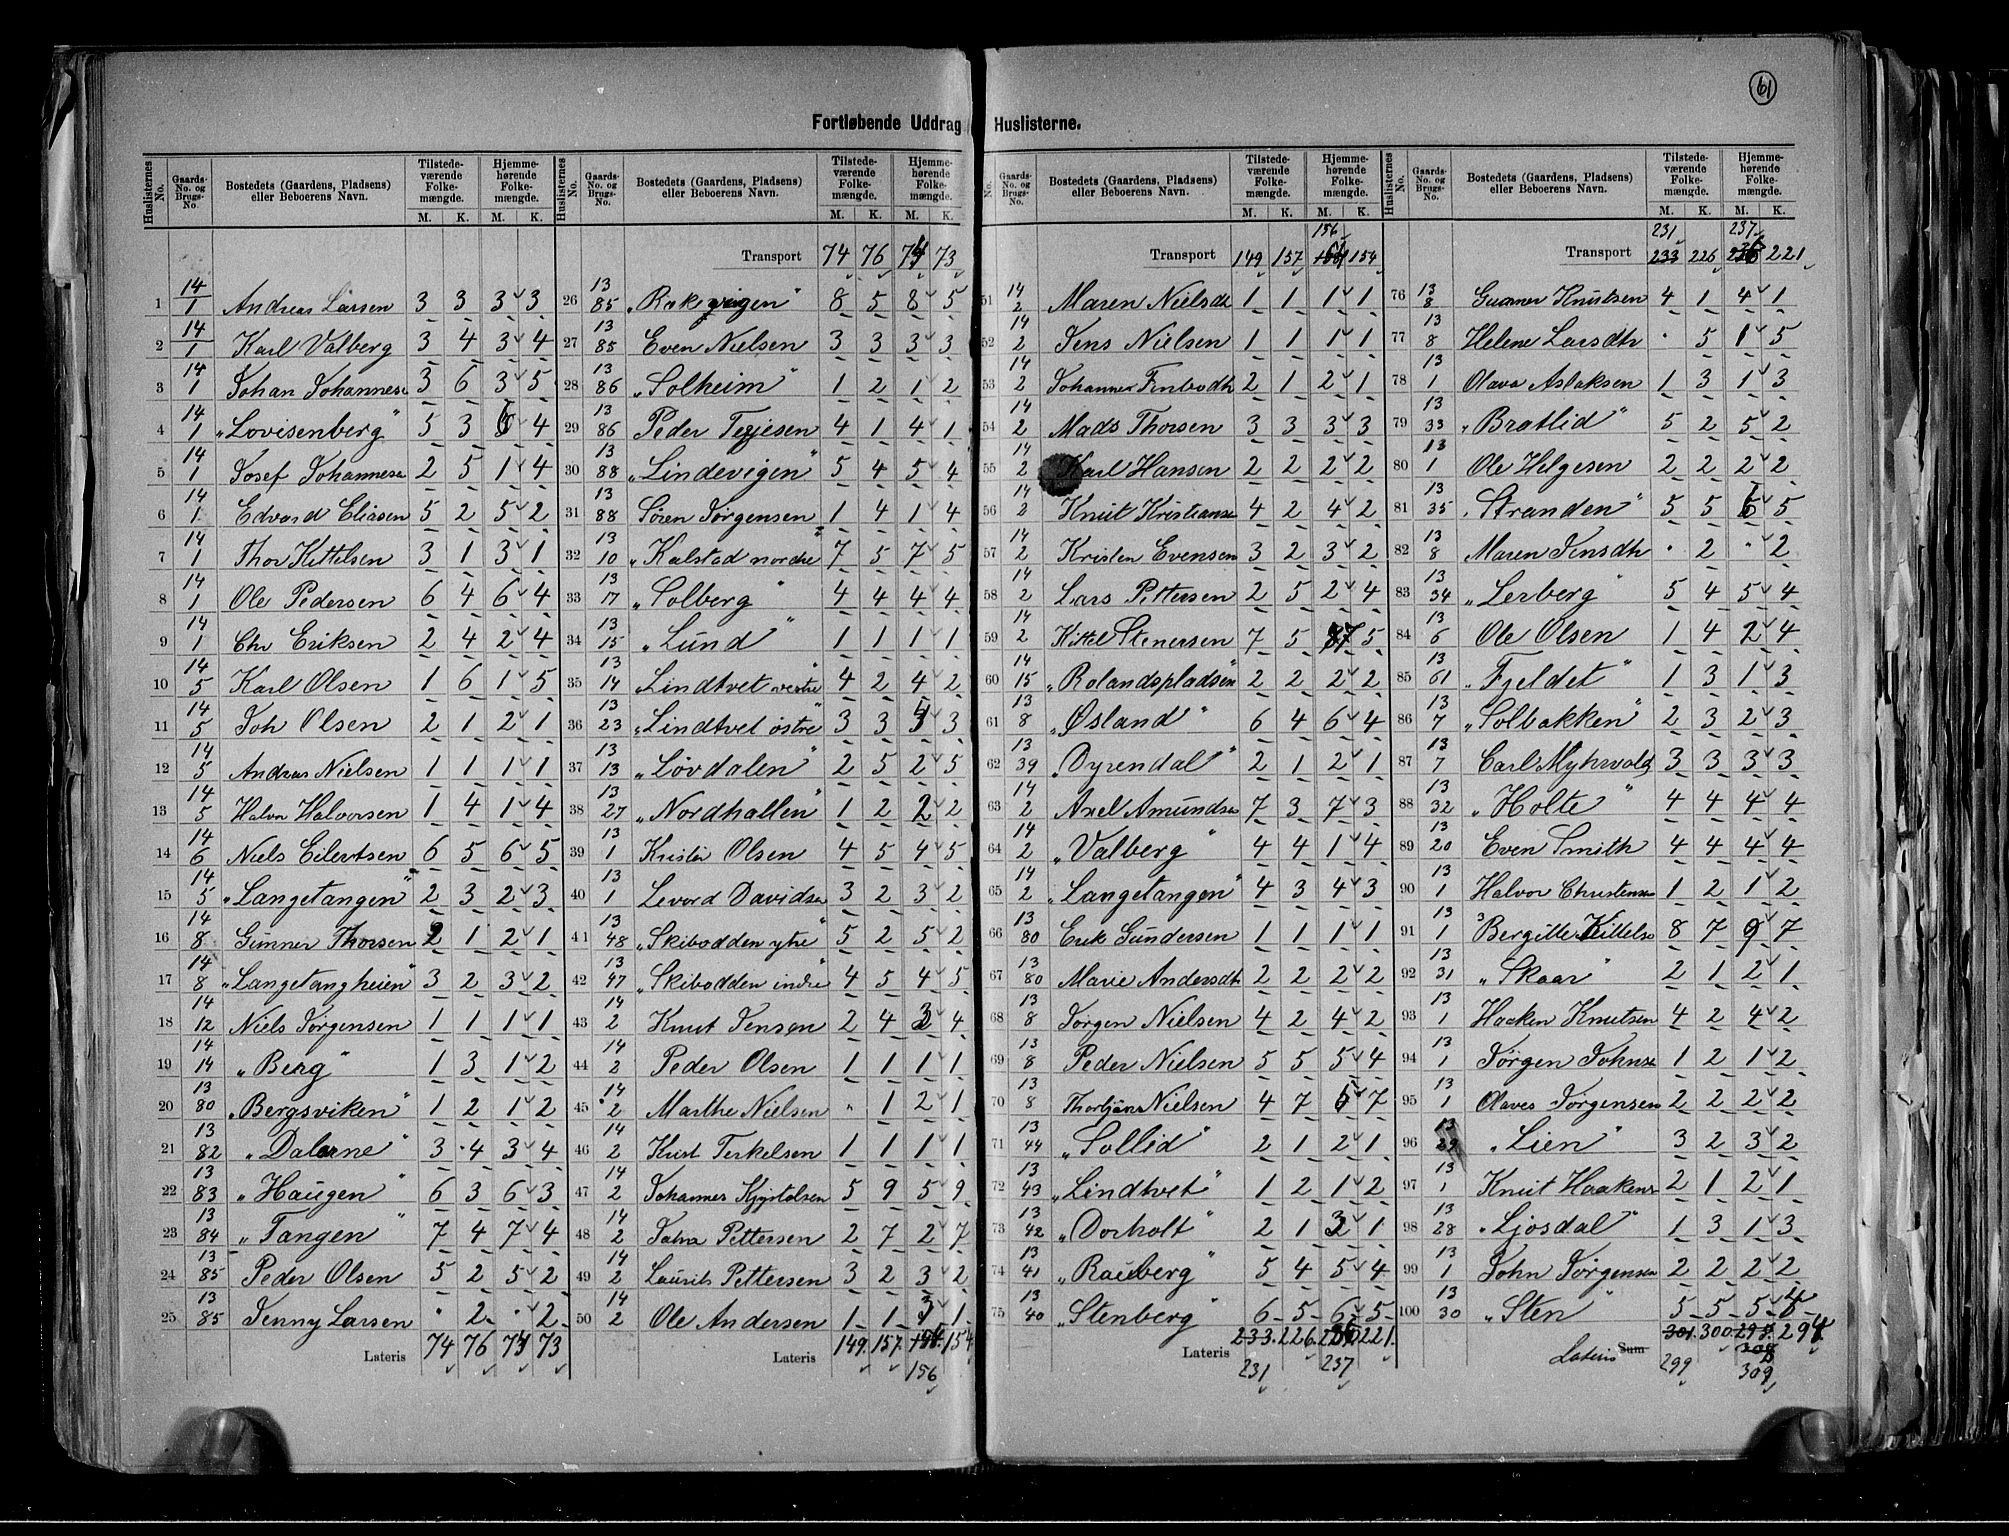 61
Fortløbende Uddrag Huslisterne.
Huslisternes No. Gaards-No. og Brugs-No. Bostedets (Gaardens, Pladsens) eller Beboerens Navn. Tilstedeværende Folkemængde. M. K. Hjemmehørende Folkemængde. M. K.
1 14/1 Andreas Larsen 3 3 3 3
2 14/1 Karl Valberg 3 4 3 4
3 14/1 Johan Johannese 3 6 3 5
4 14/1 "Lovisenberg" 5 3 6 4
5 14/1 Josef Johannese 2 5 1 4
6 14/1 Edvard Eliasen 5 2 5 2
7 14/1 Thor Kittelsen 3 1 3 1
8 14/1 Ole Pedersen 6 4 6 4
9 14/1 Chr Eriksen 2 4 2 4
10 14/5 Karl Olsen 1 6 1 5
11 14/5 Joh Olsen 2 1 2 1
12 14/5 Andreas Nielsen 1 1 1 1
13 14/5 Halvor Halvorsen 1 4 1 4
14 14/6 Niels Eilertsen 6 5 6 5
15 14/5 "Langetangen" 2 3 2 3
16 14/8 Gunner Thorsen 2 1 2 1
17 14/8 "Langetangheien" 3 2 3 2
18 14/12 Niels Jørgensen 1 1 1 1
19 14/14 "Berg" 1 3 1 2
20 13/80 "Bergsviken" 1 2 1 2
21 13/82 "Dalene" 3 4 3 4
22 13/83 "Haugen" 6 3 6 3
23 13/84 "Tangen" 7 4 7 4
24 13/85 Peder Olsen 5 2 5 2
25 13/85 Jenny Larsen · 2 · 2
Lateris 74 76 74 73
Huslisternes No. Gaards-No. og Brugs-No. Bostedets (Gaardens, Pladsens) eller Beboerens Navn. Tilstedeværende Folkemængde. M. K. Hjemmehørende Folkemængde. M. K.
Transport 74 76 74 73
26 13/85 "Rakevigen" 8 5 8 5
27 13/85 Even Nielsen 3 3 3 3
28 13/86 "Solheim" 1 2 1 2
29 13/86 Peder Terjesen 4 1 4 1
30 13/88 "Lindevigen" 5 4 5 4
31 13/88 Søren Jørgensen 1 4 1 4
32 13/10 "Kalstad nordre" 7 5 7 5
33 13/17 "Solberg" 4 4 4 4
34 13/15 "Lund" 1 1 1 1
35 13/14 "Lindtvet vestre" 4 2 4 2
36 13/23 "Lindtvet østre" 3 3 4 3
37 13/13 "Løvdalen" 2 5 2 5
38 13/27 "Nordhallen" 1 2 2 2
39 13/1 Kristen Olsen 4 5 4 5
40 13/1 Levord Davidse 3 2 3 2
41 13/48 "Skibodden ytre" 5 2 5 2
42 13/47 "Skibodden indre" 4 5 4 5
43 14/2 Knut Jensen 2 4 3 4
44 14/2 Peder Olsen 1 1 1 1
45 14/2 Marthe Nielsen · 1 2 1
46 14/2 Knut Terkelsen 1 1 1 1
47 14/2 Johannes Kjøstolsen 5 9 5 9
48 14/2 Pettersen 2 7 2 7
49 14/2 Laurits Pettersen 3 2 3 2
50 14/2 Ole Andersen 1 1 3 1
Lateris 149 157 154
156
No. Gaards-No. og Brugs-No. Bostedets (Gaardens, Pladsens) eller Beboerens Navn. Tilstedeværende Folkemængde. M. K. Hjemmehørende Folkemængde. M. K.
156
Transport 149 157 154
51 14/2 Maren Nielsdt 1 1 1 1
52 14/2 Jens Nielsen 1 1 1 1
53 14/2 Johanne Finbodt 2 1 2 1
54 14/2 Mads Thorsen 3 3 3 3
55 14/2 Karl Hansen 2 2 2 2
56 14/2 Knut Kristianse 4 2 4 2
57 14/2 Kristen Evensen 3 2 3 2
58 14/2 Lars Pettersen 2 5 2 4
59 14/2 Kittel Stenersen 7 5 7 5
60 14/15 "Rolandspladsen" 2 2 2 2
61 13/8 "Øsland" 6 4 6 4
62 13/39 "Dyrendal" 2 1 2 1
63 14/2 Axel Amundse 7 3 7 3
64 14/2 "Valberg" 4 4 1 4
65 14/2 "Langetangen" 4 3 4 3
66 13/80 Erik Gundersen 1 1 1 1
67 13/80 Marie Andersdt 2 2 2 2
68 13/8 Jørgen Nielsen 4 2 4 2
69 13/8 Peder Nielsen 5 5 5 4
70 13/8 Thorbjørn Nielsen 4 7 6 7
71 13/44 "Sollid" 2 1 2 1
72 13/43 "Lindtvet" 1 2 1 2
73 13/42 "Dorholt" 2 1 3 1
74 13/41 "Rauberg" 5 4 5 4
75 13/40 "Stenberg" 6 5 6 5
Lateris 233 226 236 221
231 237
Huslisternes No. Gaards-No. og Brugs-No. Bostedets (Gaardens, Pladsens) eller Beboerens Navn. Tilstedeværende Folkemængde. M. K. Hjemmehørende Folkemængde. M. K.
231 237
Transport 233 226 236 221
76 13/8 Gunner Knutsen 4 1 4 1
77 13/8 Helene Larsdtr · 5 1 5
78 13/1 Olava Aslaksen 1 3 1 3
79 13/33 "Bratlid" 5 2 5 2
80 13/1 Ole Helgesen 2 2 2 2
81 13/35 "Stranden" 5 5 6 5
82 13/8 Maren Jensdtr · 2 · 2
83 13/34 "Lerberg" 5 4 5 4
84 13/6 Ole Olsen 1 4 2 4
85 13/61 "Fjeldet" 1 3 1 3
86 13/7 "Solbakken" 2 3 2 3
87 13/7 Carl Myhrvold 3 3 3 3
88 13/32 "Holte" 4 4 4 4
89 13/20 Even Smith 4 4 4 4
90 13/1 Halvor Christense 1 2 1 2
91 13/1 Bergitte Kittels 8 7 9 7
92 13/31 "Skaar" 2 1 2 1
93 13/1 Haaken Knutsen 4 2 4 2
94 13/1 Jørgen Johnse 1 2 1 2
95 13/1 Olaves Jørgensen 2 2 2 2
96 13/29 "Lien" 3 2 3 2
97 13/1 Knut Haakens 2 1 2 1
98 13/28 "Ljosdal" 1 3 1 3
99 13/1 John Jørgensen 2 2 2 2
100 13/30 "Sten" 5 5 5 4
Lateris Sum 301 300 294
299 309